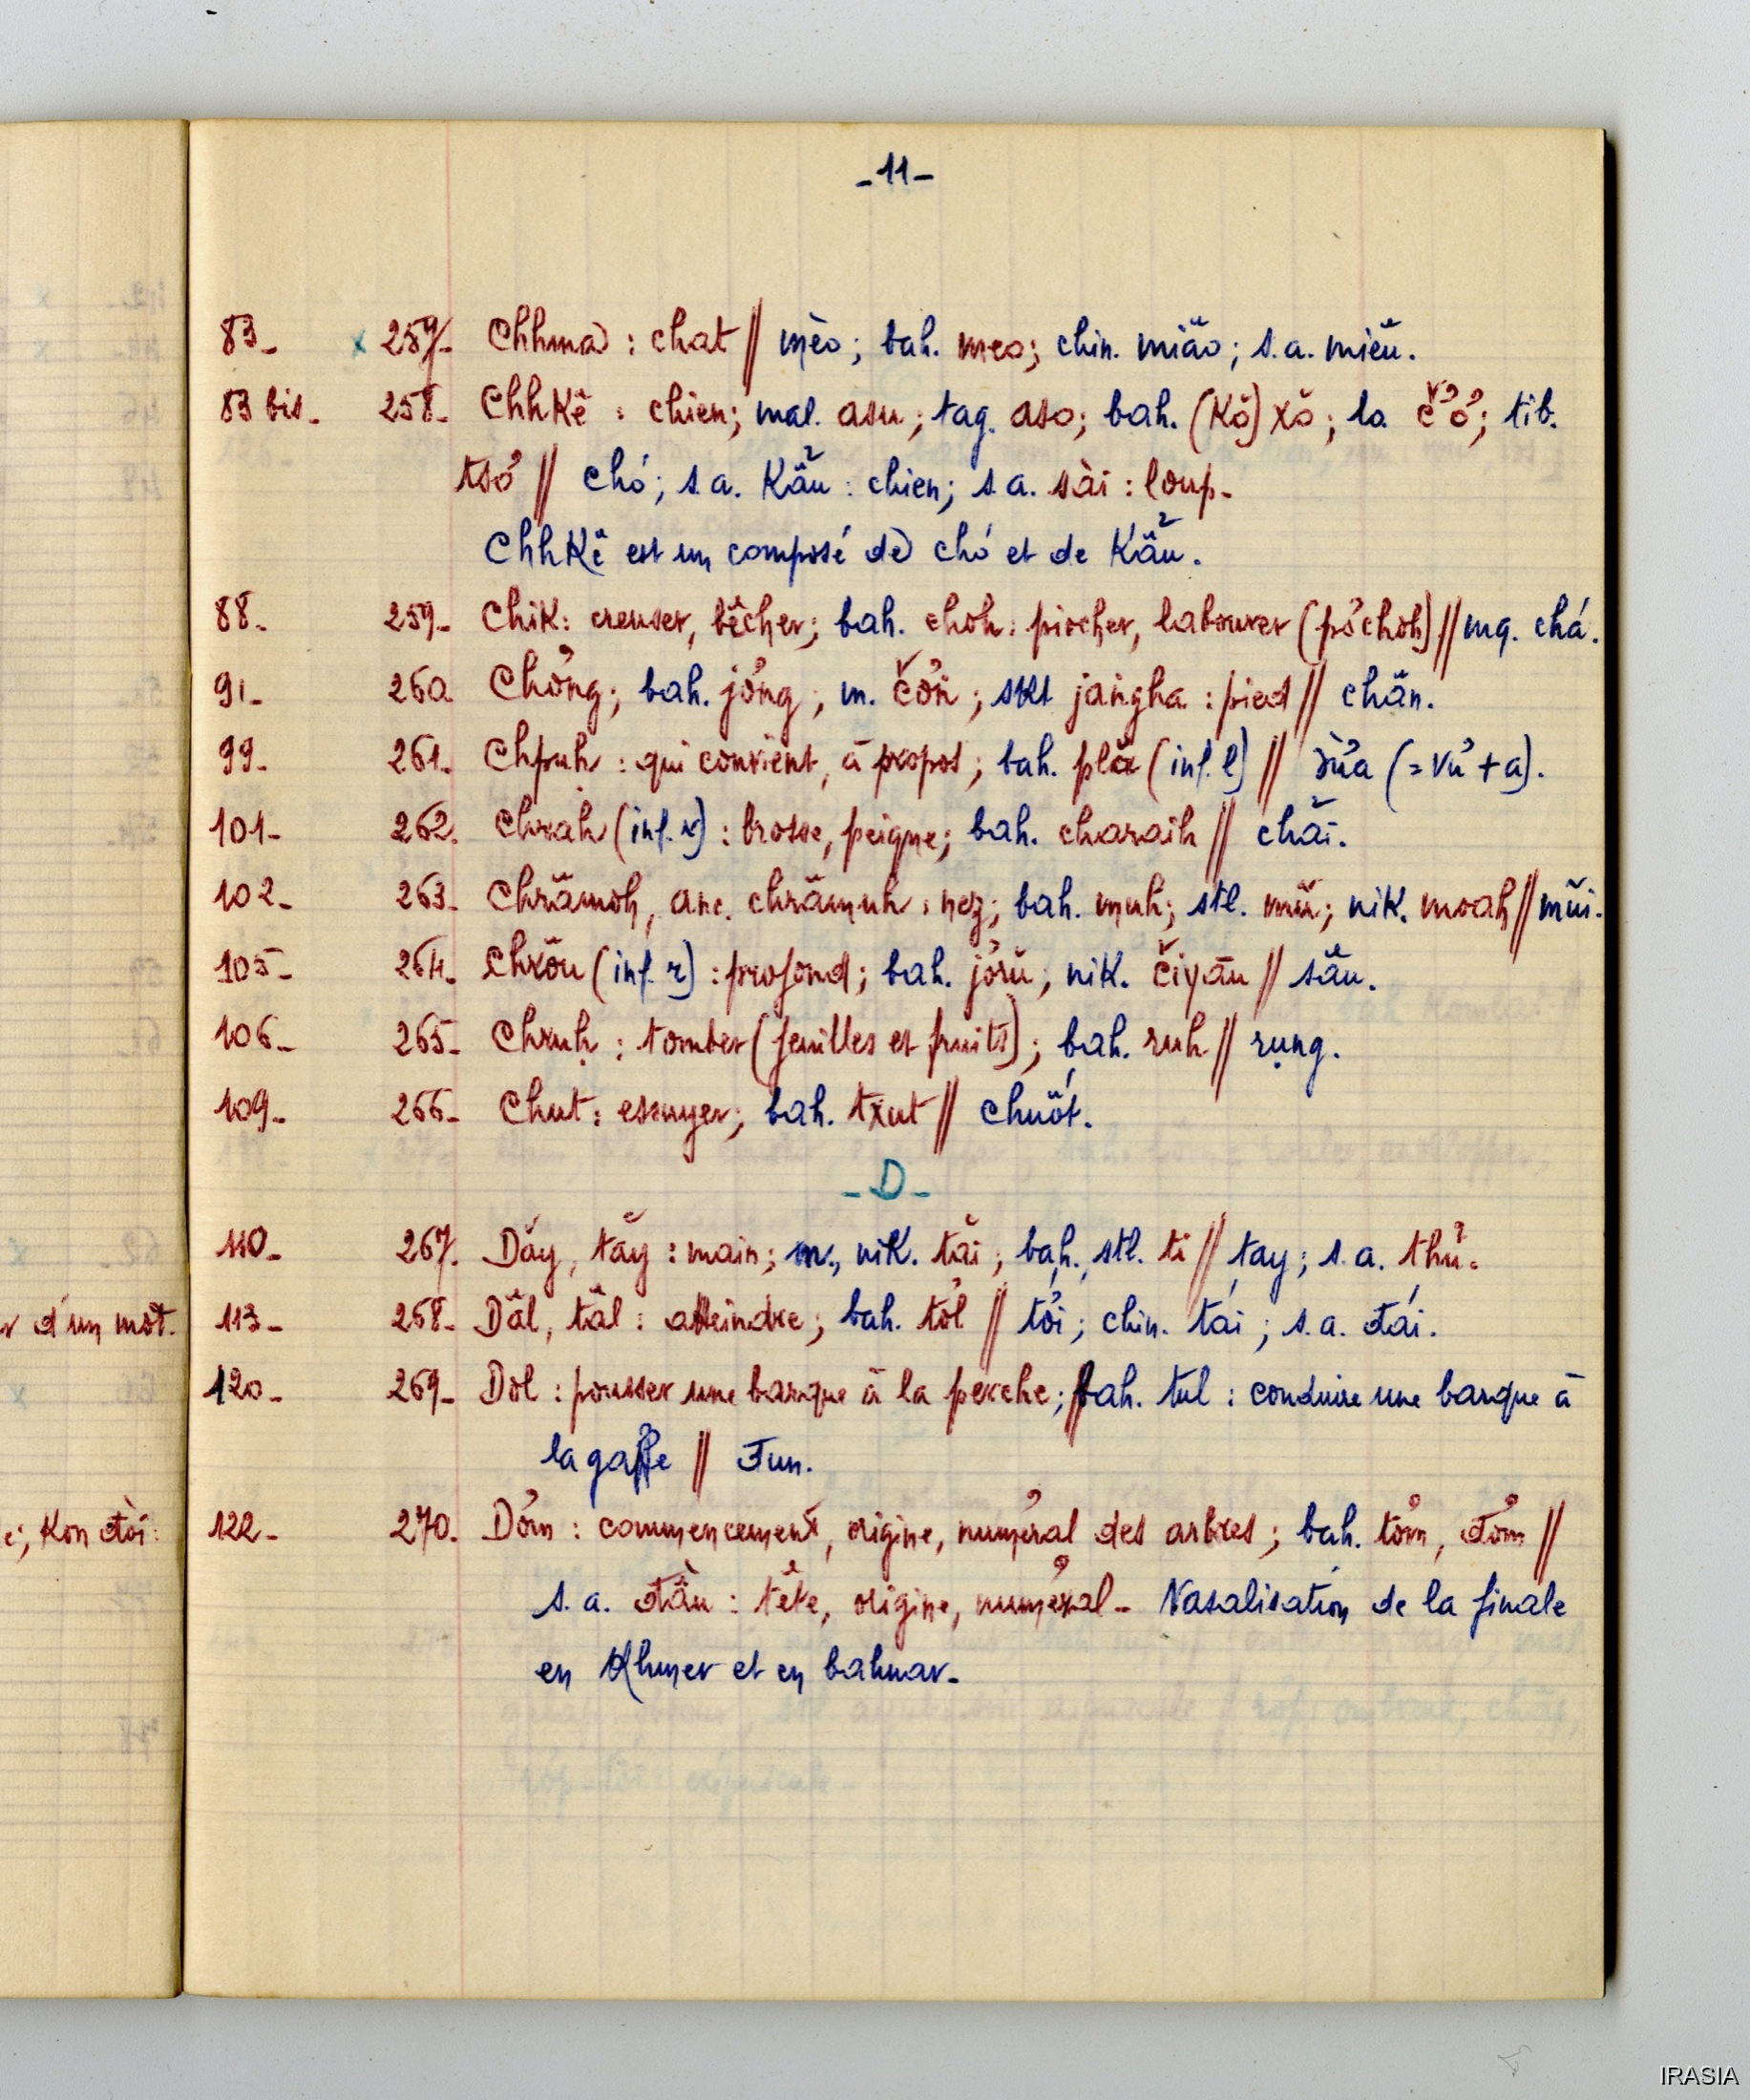 -11-
83- x 257- Chhma : chat // mèo; bah. meo; chin. miāo; s.a. miêu.
83 bis- 258- Chhkê : chien; mal. asu; tag. aso; bah. (kŏ) xŏ; la. č̛ơ; tib.
tsơ // chó; s.a. Kẩu : chien; s.a. sài : loup-
Chhkê est un composé de chó et de Kẩu.
88- 259- Chik : creuser, bêcher; bah. choh : piocher, labourer (pơchoh) // mq. chá.
91- 260. Chơng; bah. jơng; m. čơn; skt jaṅgha : pied // chân.
99- 261- Chpuh : qui convient, à propos; bah. (inf. l) // vừa (= vư + a).
101- 262. Chrah (inf. r) : brosse, peigne; bah. charaih // chải.
102- 263- Chrămoh, anc. chrămuh : nez; bah. muh; stl. nik. moah // mũi.
105- 264- Chrŏu (inf. r) : profond; bah. jơrŭ; nik. čiyāu // sâu.
106- 265- Chruh : tomber (feuilles et fruits); bah. ruh // rụng.
109- 266- Chut : essuyer; bah. txut // chuốt.
-D-
110- 267. Dăy, tăy : main; m., nik. tăi; bah., stl. ti // tay; s.a. thủ.
r d'un mot. 113- 268- Dâl, tâl : atteindre; bah. tơl // tới; chin. tái; s.a. đái.
120- 269- Dol : pousser une barque à la perche; bah. tul : conduire une barque à
la gaffe // đun.
e; Kon đòi : 122- 270. Dơm : commencement, origine, numéral des arbres; bah. tơm, đơm //
s.a. đầu : tête, origine, numéral- Nasalisation de la finale
en Khmer et en bahnar-
IRASIA